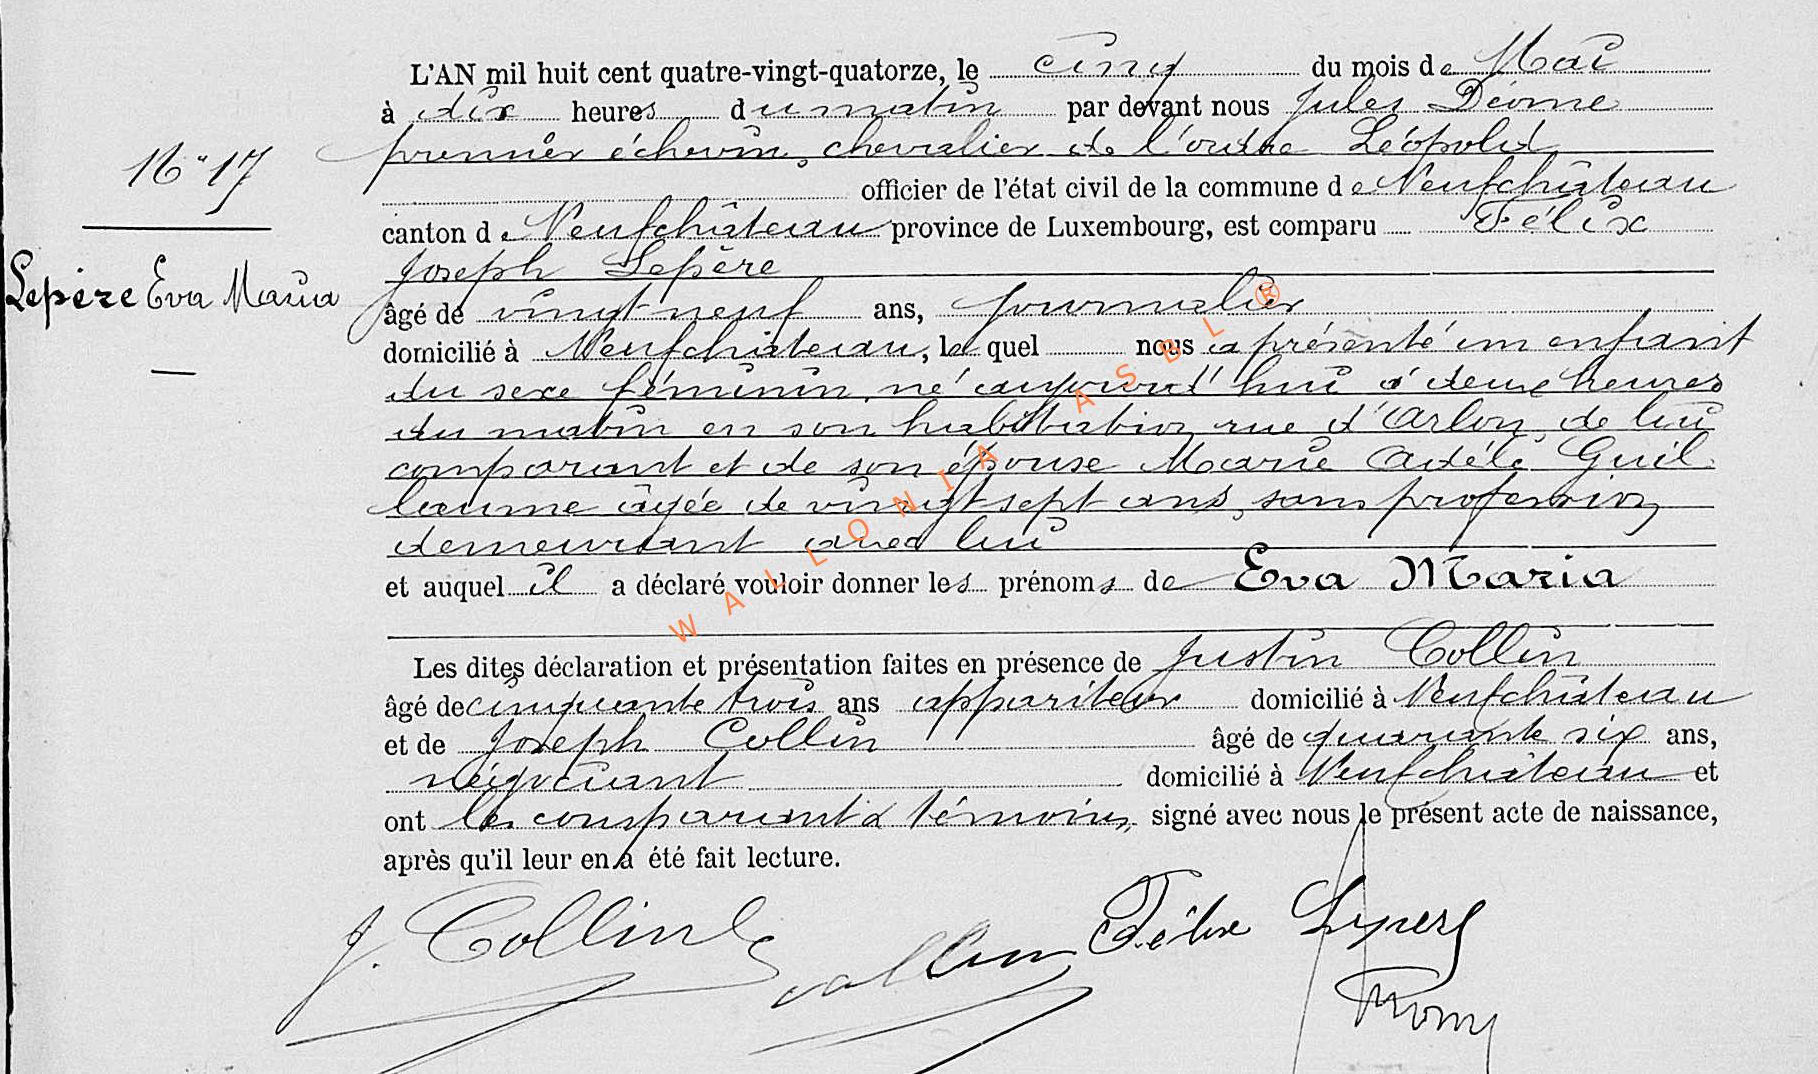 L'AN mil huit cent quatre-vingt-quatorze, le cinq du mois de Mai
à dix heures du matin par devant nous Jules Déome
premier échevin, chevalier de l'ordre Léopold
officier de l'état civil de la commune de Neufchâteau
canton de Neufchâteau province de Luxembourg, est comparu Félix
Joseph Lepère
âgé de vingt neuf ans, journalier
domicilié à Neufchâteau, lequel nous a présenté un enfant
du sexe féminin, né aujourd'hui à deux heures
du matin en son habitation rue d'Arlon, de lui
comparant et de son épouse Marie Adèle Guil
laume âgée de vingt sept ans, sans profession
demeurant avec lui
et auquel il a déclaré vouloir donner les prénoms de Eva Maria
Les dites déclaration et présentation faites en présence de Justin Collin
âgé de cinquante trois ans appariteur domicilié à Neufchâteau
et de Joseph Collin âgé de quarante six ans,
négociant domicilié à Neufchâteau et
ont les comparant & témoins, signé avec nous le présent acte de naissance,
après qu'il leur en a été fait lecture.
J. Collin Collin Félix Lepère
N° 17
Lepère Eva Maria
WALLONIA ASBL ®